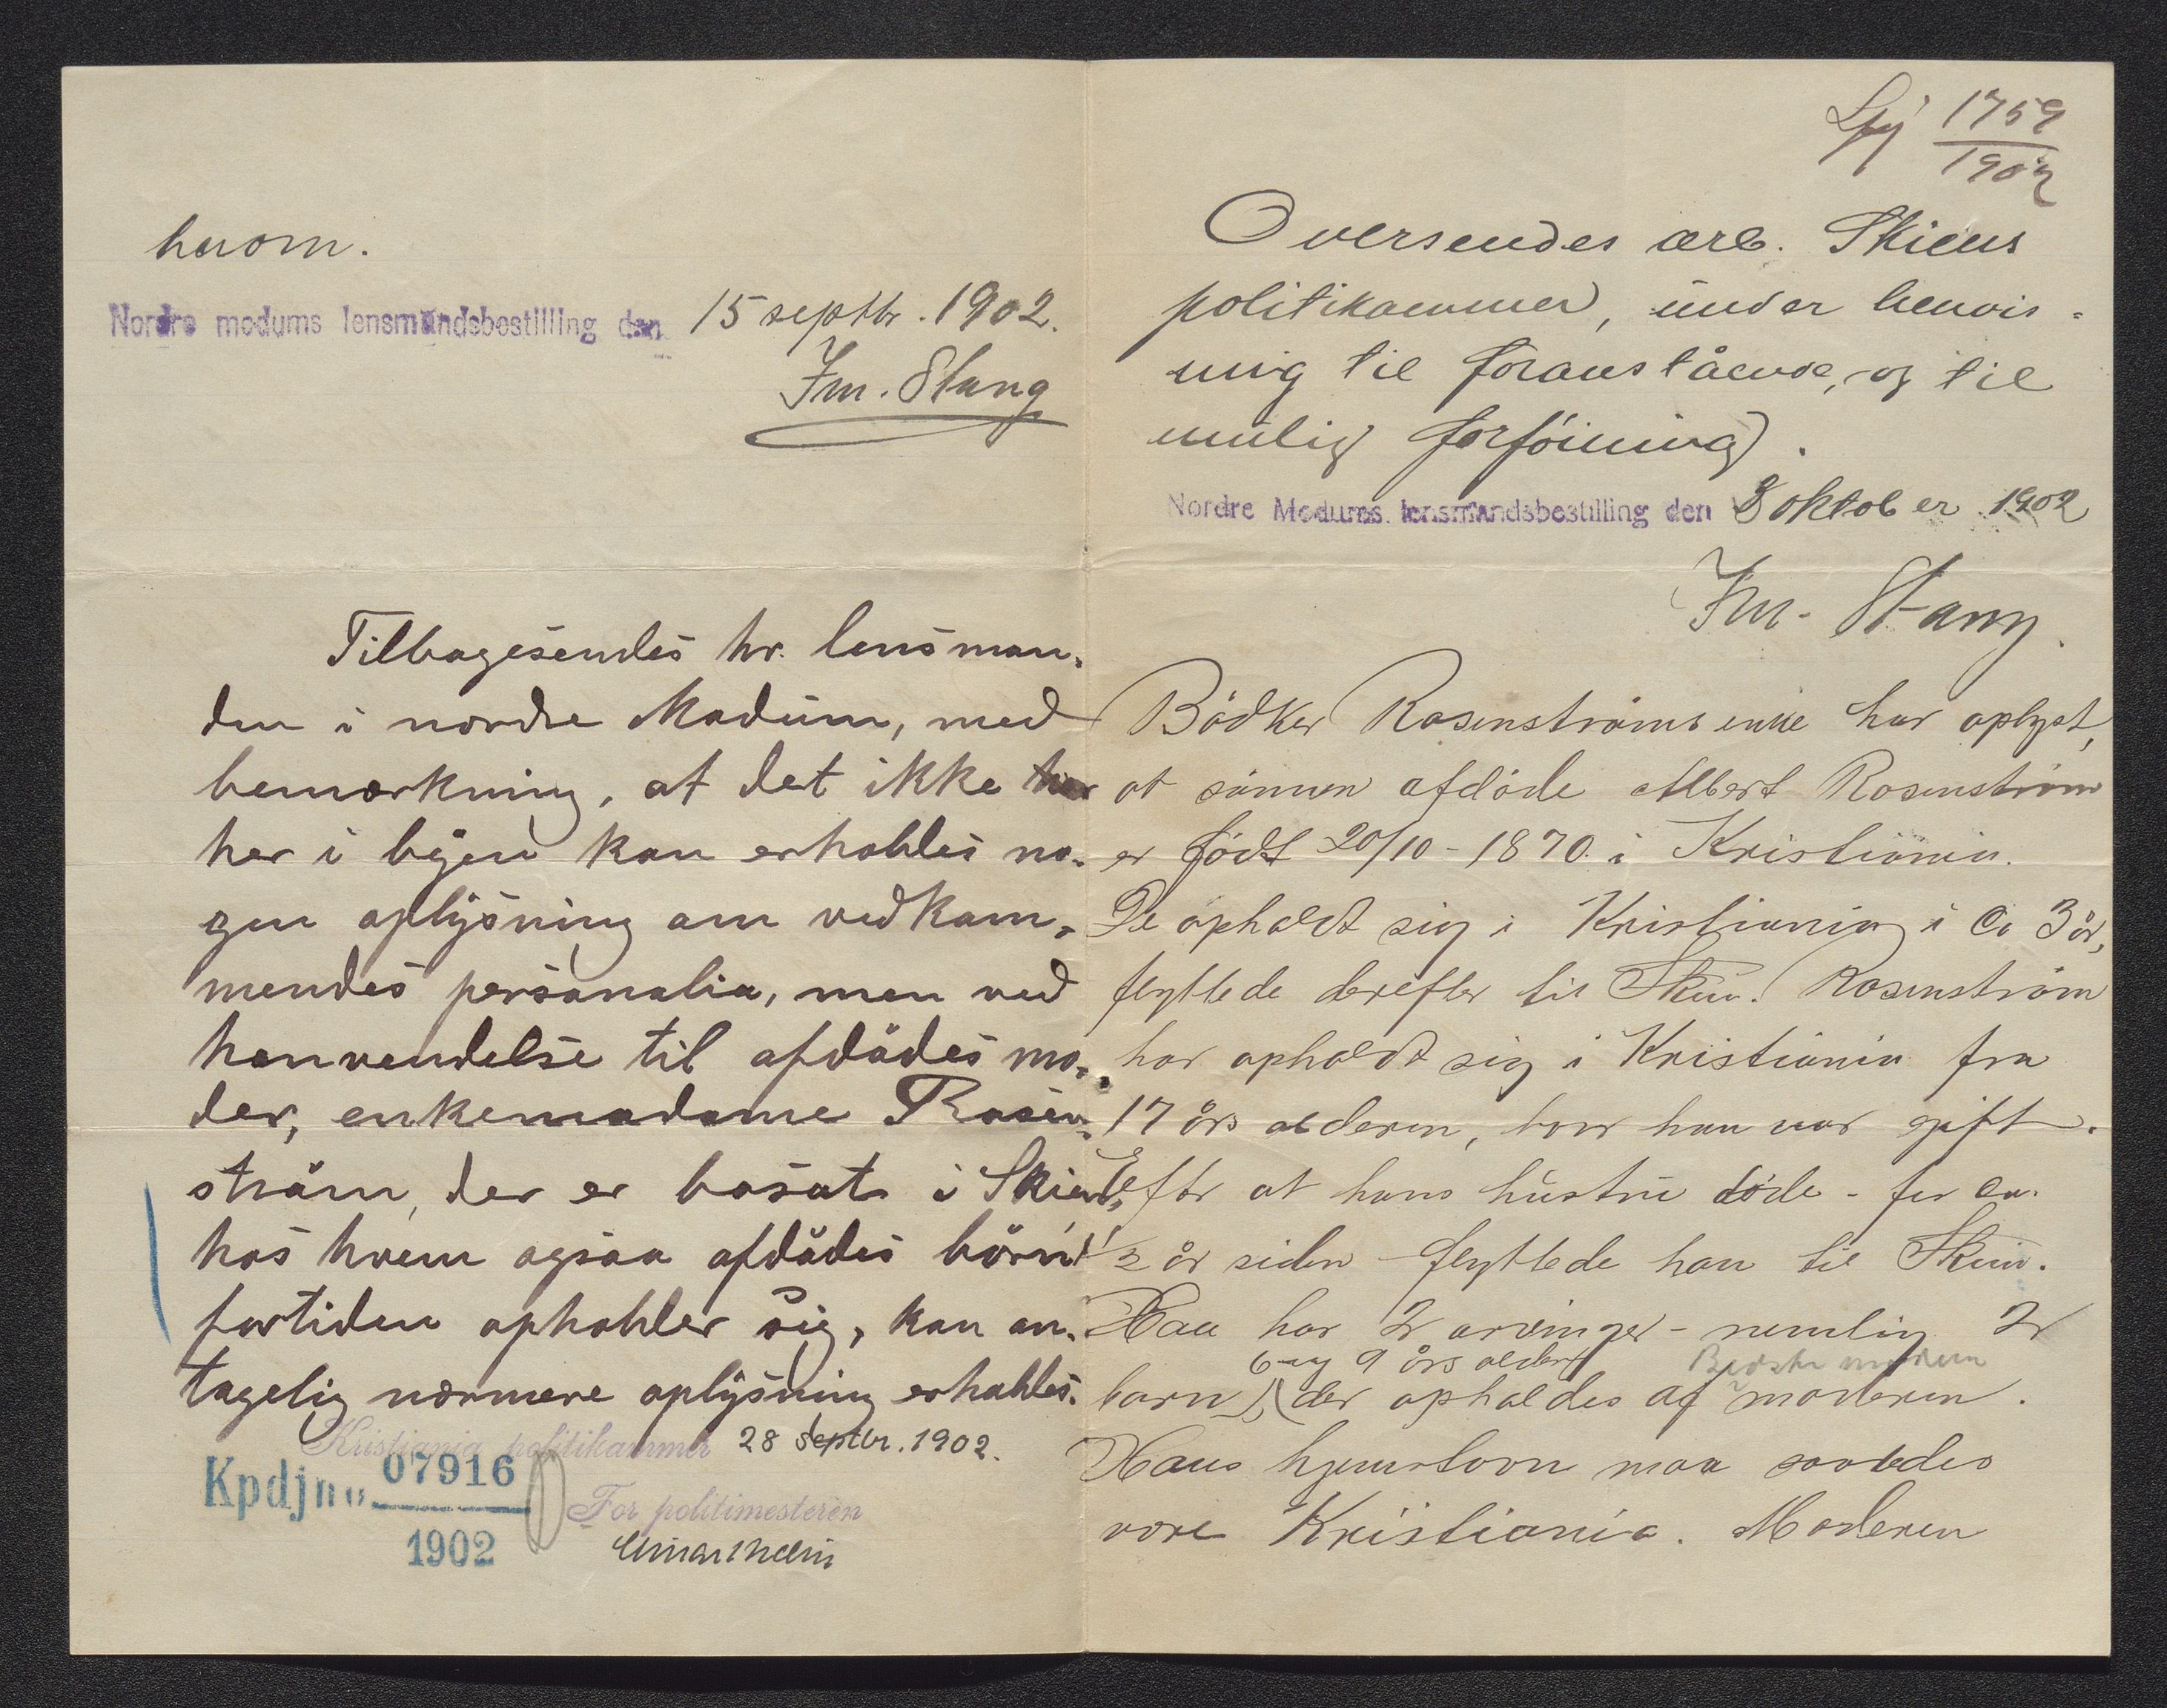 herom.
Nordre modums lensmandsbestilling den 15 septbr. 1902.
Fm. Stang
Tilbagesendes hr. lensman-
den i nordre Modum, med
bemærkning, at det ikke
her i byen kan erholdes no-
gen oplysning om vedkom-
mendes personalia, men ved
henvendelse til afdödes mo-
der, enkemadame Rosen-
ström, der er bosat i Skien,
hos hvem ogsaa afdödes börn
fortiden opholder sig, kan an-
tagelig nærmere oplysning erholdes.
Kristiania politikammer 28 Septbr. 1902.
Kpdjno 07916
1902
For politimesteren
1759
1902
Oversendes ærb. Skiens
politikammer, under henvis-
ning til foranstående, og til
mulig forföining.
Nordre Modums lensmandsbestilling den 3 oktober 1902
Fm. Stang.
Bödker Rosenströms enke har oplyst,
at sönnen afdöde Albert Rosenström
er födt 20/10-1870 i Kristiania.
De opholdt sig i Kristiania i ca 3 år,
flyttede derefter til Skien. Rosenström
har opholdt sig i Kristiania fra
17 års alderen, hvor han var gift.
Efter at hans hustru döde - for ca.
1/2 år siden - flyttede han til Skien.
Han har 2 arvinger - nemlig 2
6 og 9 års alderen Bedstemoderen
barn, der opholdes af moderen.
Hans hjemstavn maa saaledes
være Kristiania. Moderen